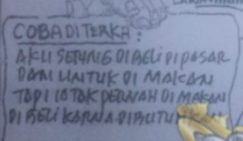 COBA DITERKA:
AKU SERING DI BELI DI PASAR
DAN UNTUK DI MAKAN
TAPI TAK PERNAH DI MAKAN
DI BELI KARNA DI BUTUHKAN